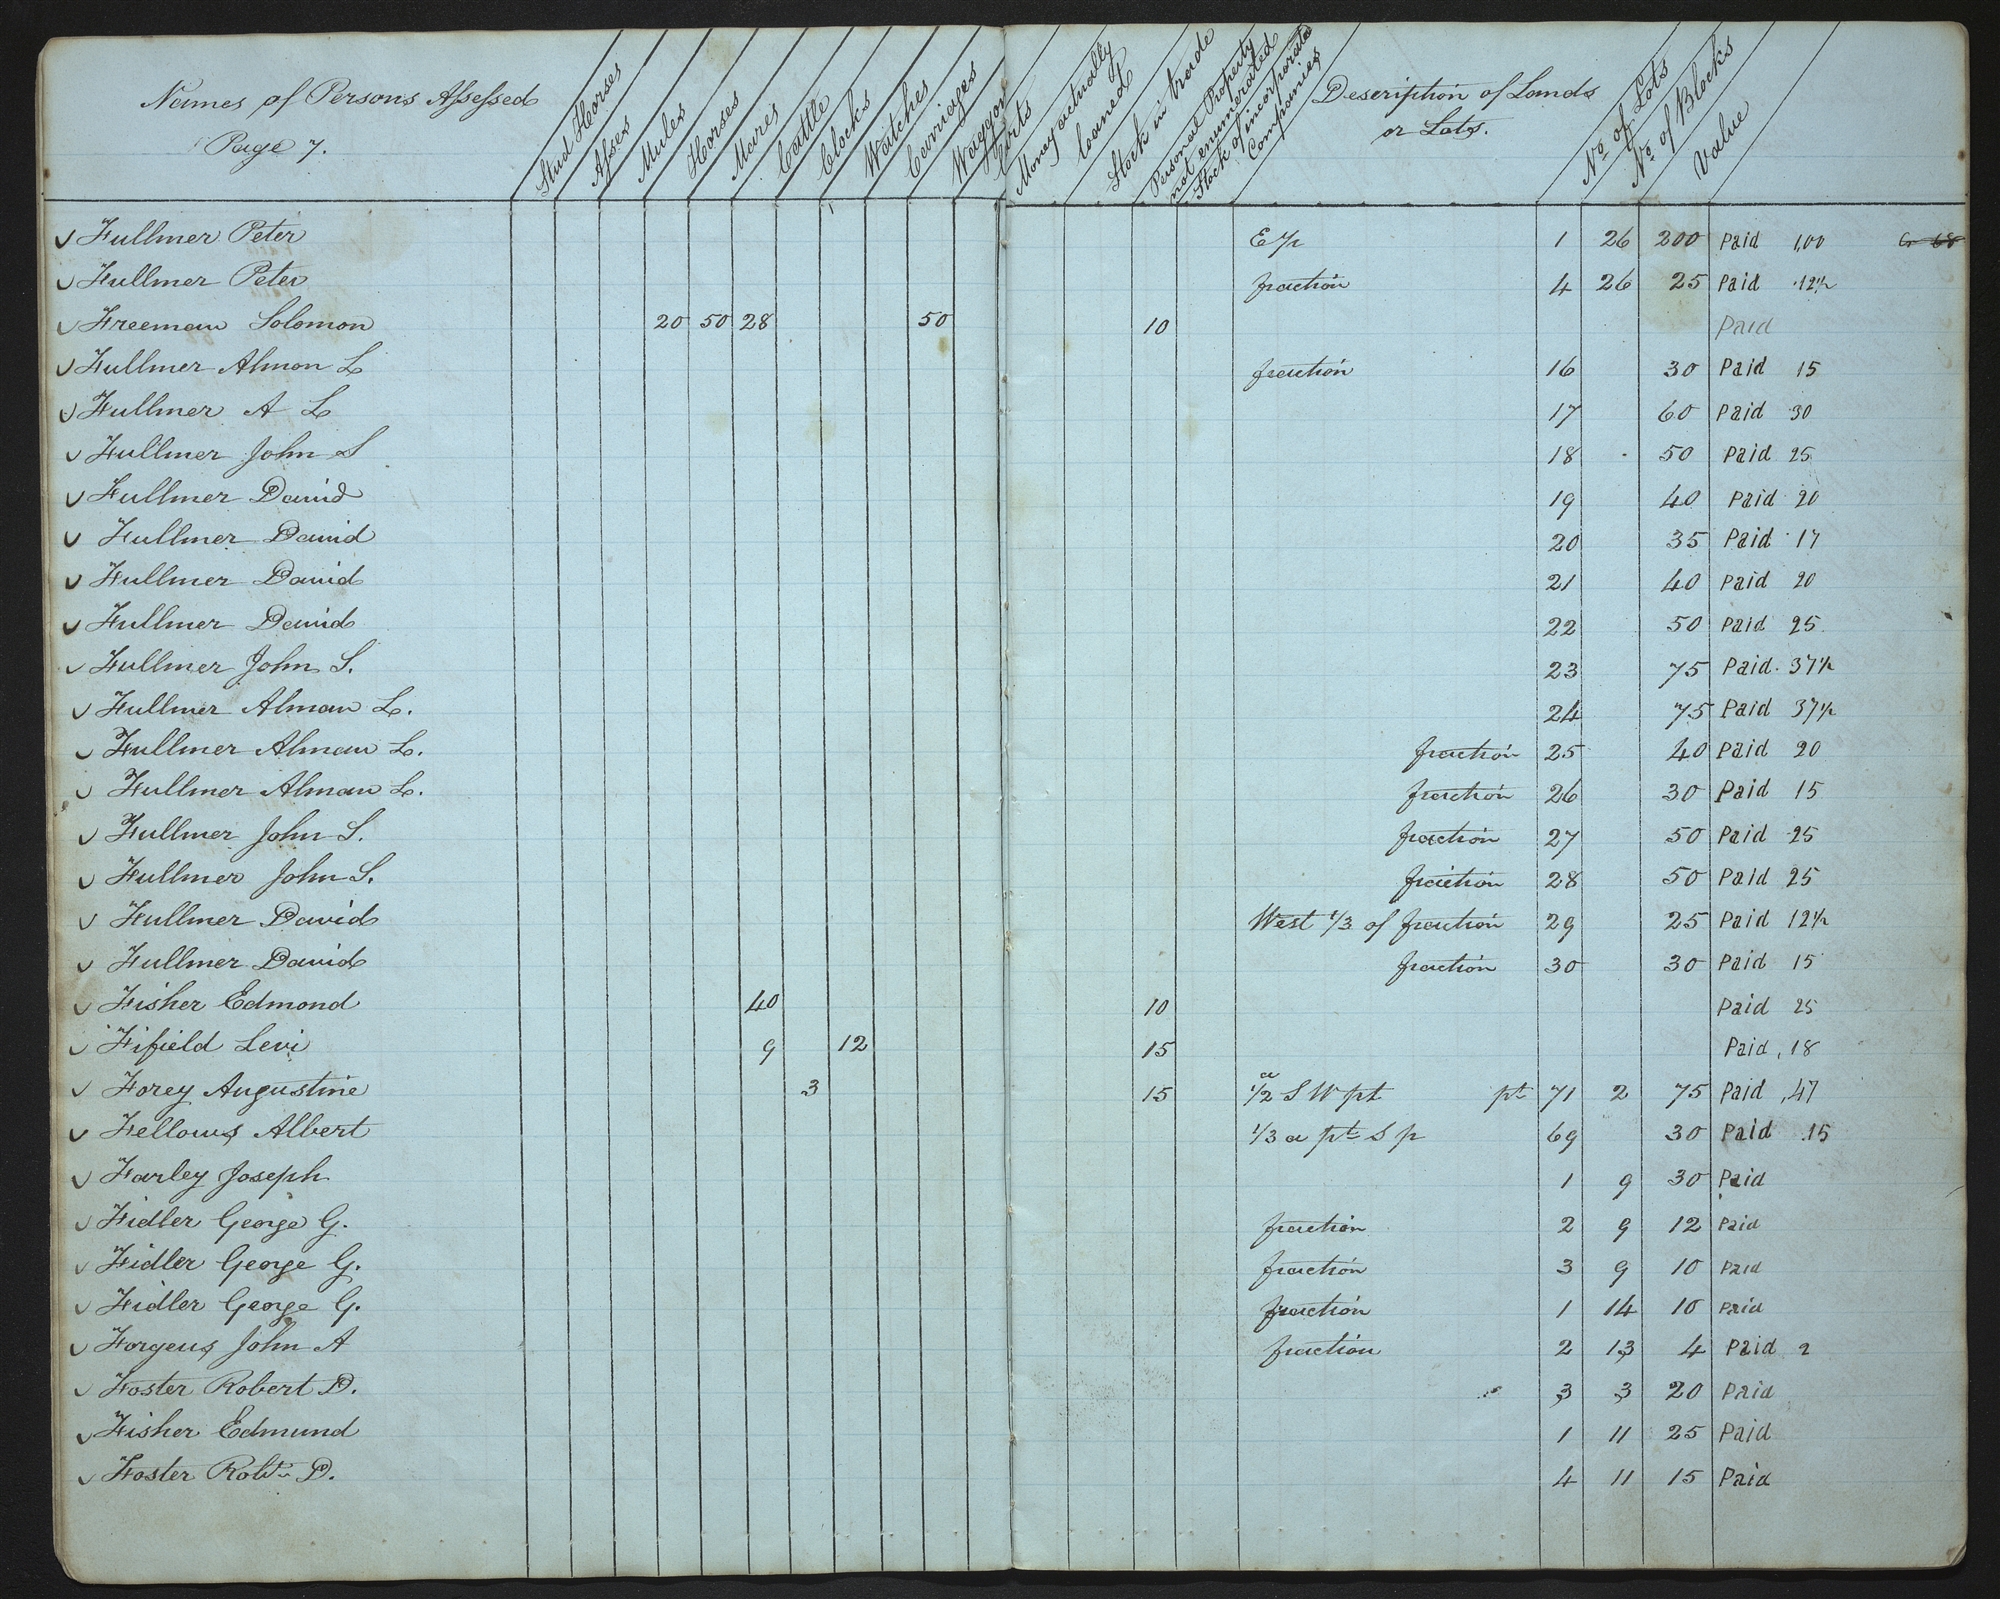 Names of Persons Assessed
Page 7.
Stud Horses
Asses
Mules
Horses
Mares
Cattle
Clocks
Watches
Carriages
Waggons
Carts
Money actually
loaned
Stock in trade
Personal Property
not enumerated
Stock of incorporated
Companies
Description of Lands
or Lots.
No of Lots
No of Blocks
Value
Fullmer Peter E ½ 1 26 200 Paid 1,00 68
Fullmer Peter fraction 4 26 25 Paid .12½
Freeman Solomon 20 50 28 50 10 Paid
Fullmer Almon L fraction 16 30 Paid 15
Fullmer A L 17 60 Paid 30
Fullmer John S 18 50 Paid 25
Fullmer David 19 40 Paid 20
Fullmer David 20 35 Paid 17
Fullmer David 21 40 Paid 20
Fullmer David 22 50 Paid 25
Fullmer John S. 23 75 Paid. 37½
Fullmer Alman L. 24 75 Paid 37½
Fullmer Alman L. fraction 25 40 Paid 20
Fullmer Alman L. fraction 26 30 Paid 15
Fullmer John S. fraction 27 50 Paid 25
Fullmer John S. fraction 28 50 Paid 25
Fullmer David West 1/3 of fraction 29 25 Paid 12½
Fullmer David fraction 30 30 Paid 15
Fisher Edmond 40 10 Paid 25
Fifield Levi 9 12 15 Paid ,18
Forey Augustine 3 15 ½ a S W pt pt 71 2 75 Paid ,47
Fellows Albert 1/3 a pt S p 69 30 Paid .15
Farley Joseph 1 9 30 Paid
Fidler George G. fraction 2 9 12 Paid
Fidler George G. fraction 3 9 10 Paid
Fidler George G. fraction 1 14 10 Paid
Forgeus John A fraction 2 13 4 Paid 2
Foster Robert D. 3 3 20 Paid
Fisher Edmund 1 11 25 Paid
Foster Robt D. 4 11 15 Paid